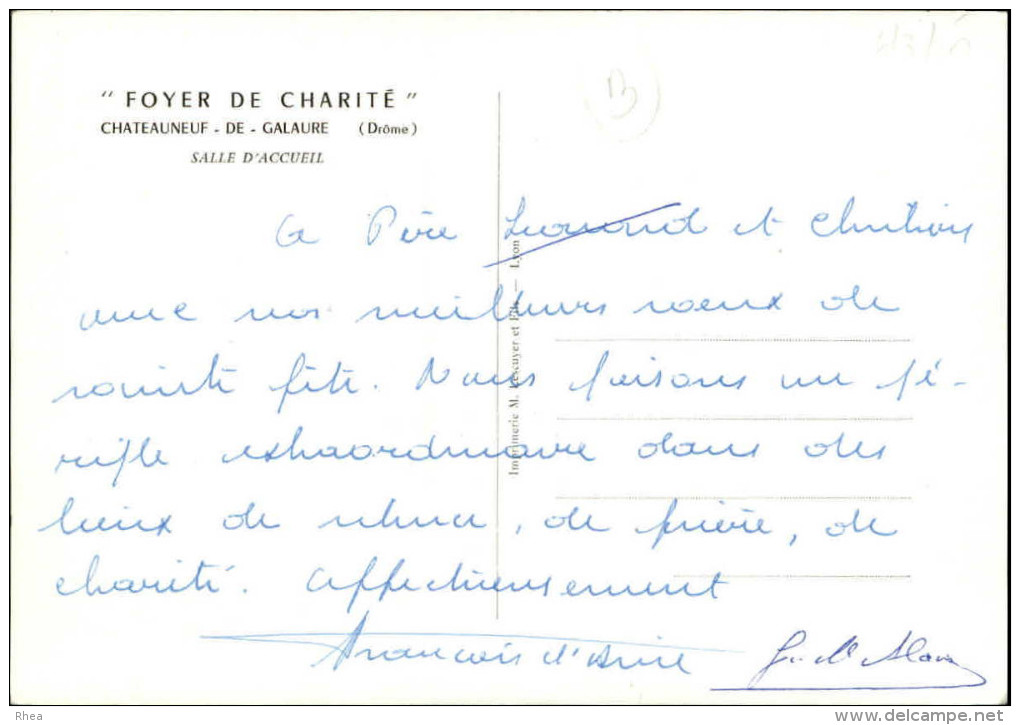 " FOYER DE CHARITÉ "
CHATEAUNEUF - DE - GALAURE (Drôme)
SALLE D'ACCUEIL
B
Imprimerie M. Lescuyer et Fils — Lyon
Père et
avec nos meilleurs voeux de
sainte fête. Nous faisons un pé-
riple extraordinaire dans des
lieux de silence, de prière, de
charité. Affectueusement
François d'
Rhea
www.delcampe.net